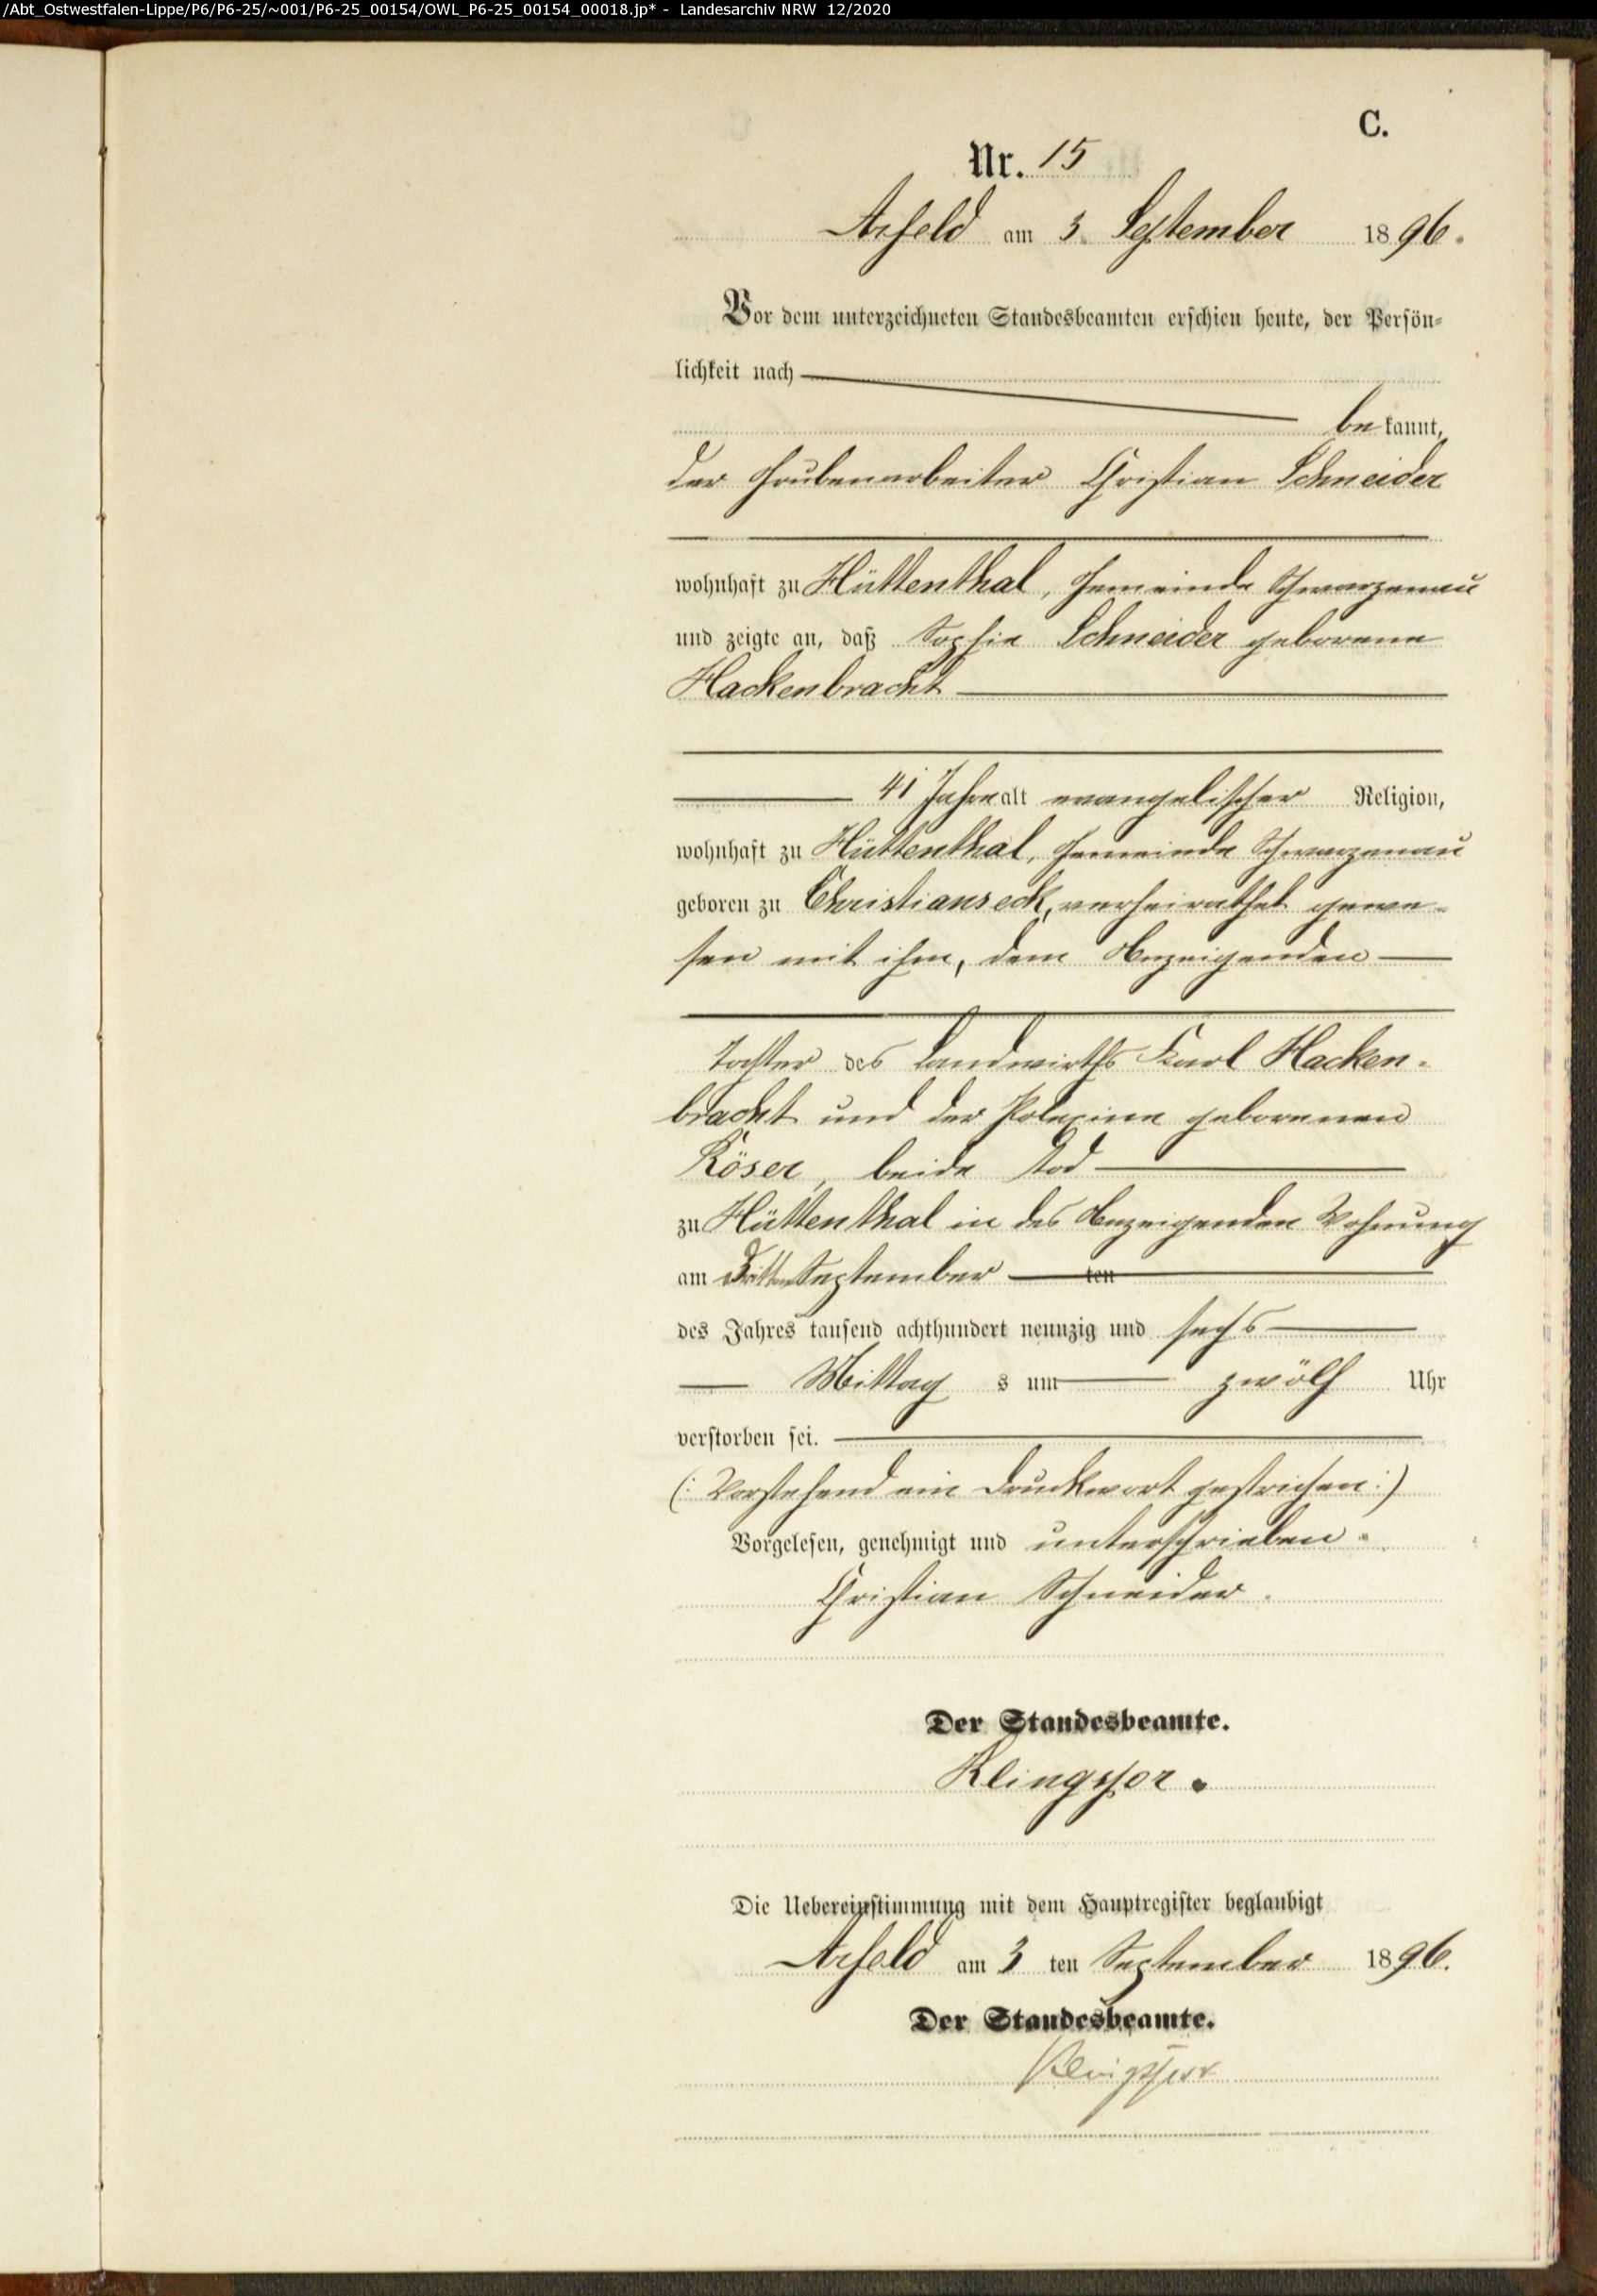 /Abt_Ostwestfalen-Lippe/P6/P6-25/~001/P6-25_00154/OWL_P6-25_00154_00018.jp* - Landesarchiv NRW 12/2020
C.
Nr. 15
Arfeld am 3. September 1896.
Vor dem unterzeichneten Standesbeamten erschien heute, der Persön-
lichkeit nach
be kannt,
der Grubenarbeiter Christian Schneider
wohnhaft zu Hüttenthal, Gemeinde Schwarzenau
und zeigte an, daß Sophie Schneider geborene
Hackenbracht
41 Jahre alt evangelischer Religion,
wohnhaft zu Hüttenthal, Gemeinde Schwarzenau
geboren zu Christianseck, verheirathet gewe-
sen mit ihm, dem Anzeigenden
Tochter des Landwirths Karl Hacken-
bracht und der Polexine geborenen
Köser, beide tod
zu Hüttenthal in des Anzeigenden Wohnung
am dritten September ten
des Jahres tausend achthundert neunzig und sechs
Mittag s um zwölf Uhr
verstorben sei.
(: Vorstehend ein Druckwort gestrichen :)
Vorgelesen, genehmigt und unterschrieben.
Christian Schneider.
Der Standesbeamte.
Klingspor.
Die Uebereinstimmung mit dem Hauptregister beglaubigt
Arfeld am 3 ten September 1896.
Der Standesbeamte.
Klingspor